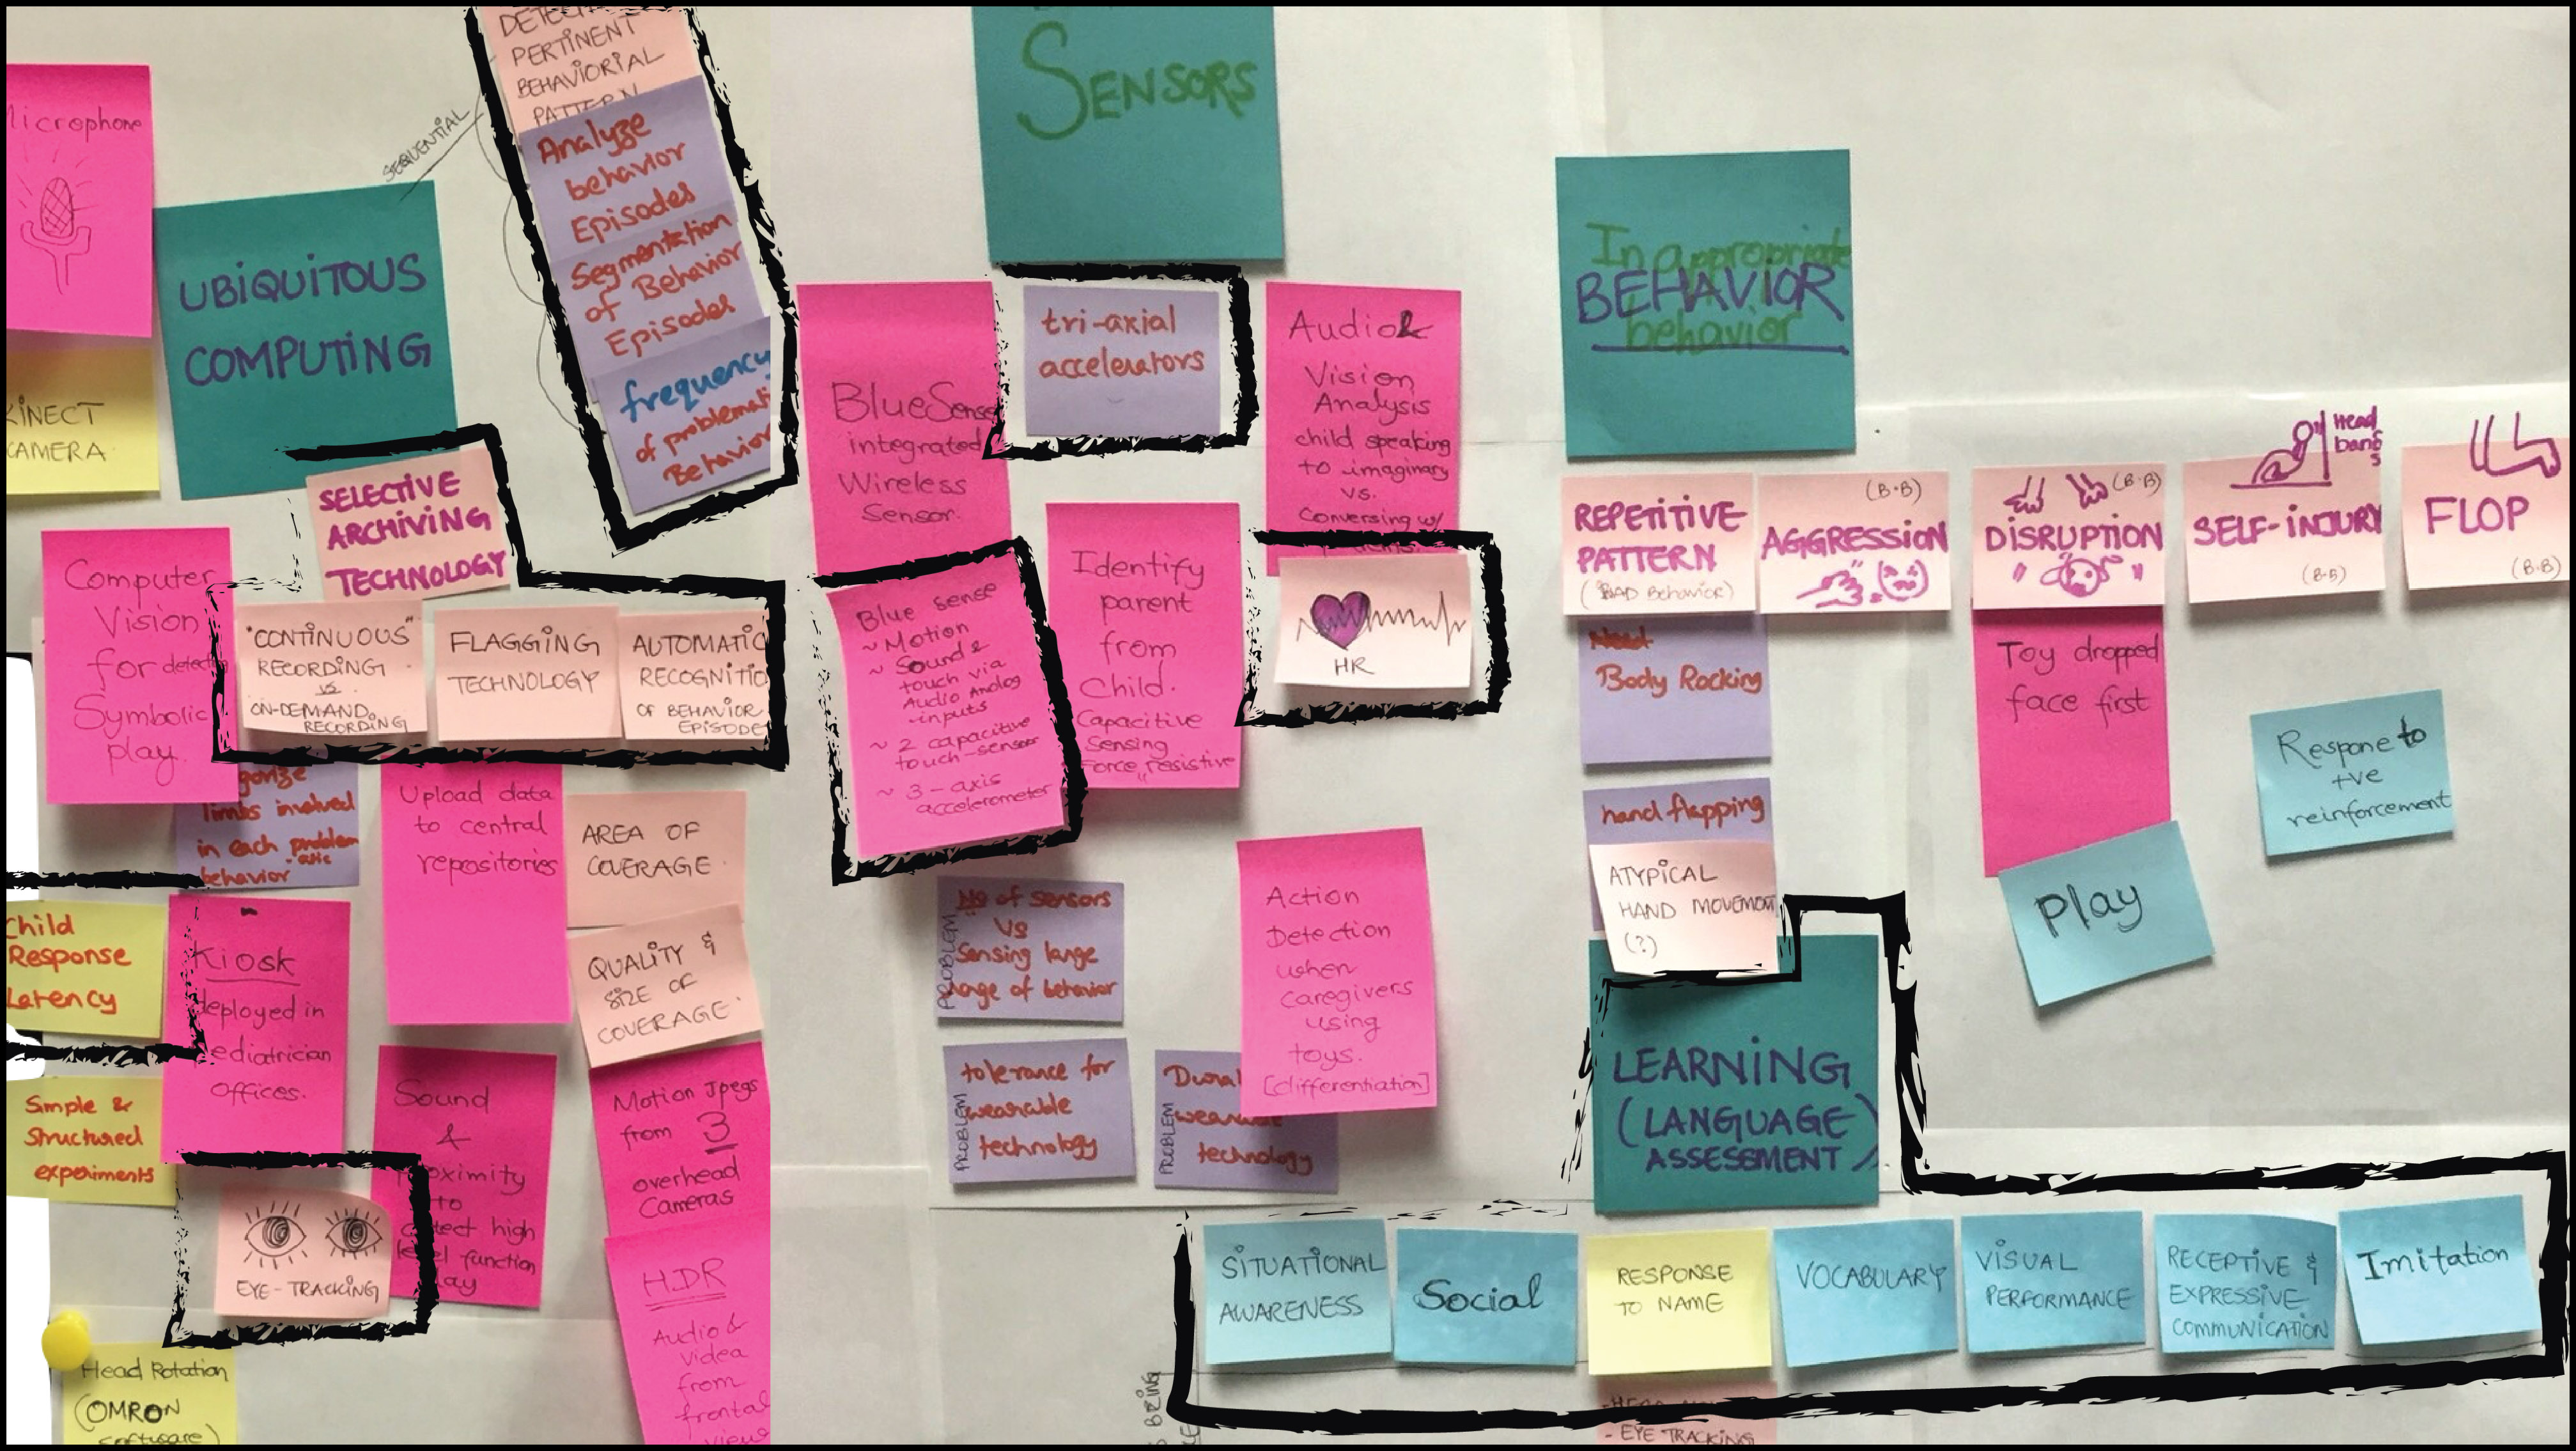 Microphone
KINECT
CAMERA.
UBIQUITOUS
COMPUTING
SEQUENTIAL
PERTINENT
BEHAVIORIAL
PATTERN
Analyze
behavior
Episodes
Segmentation
of Behavior
Episodes
frequency
of problemati
Behavior
SELECTIVE
ARCHIVING
TECHNOLOGY
Computer
Vision
for detecting
Symbolic
play.
"CONTINUOUS"
RECORDING
vs.
ON-DEMAND
RECORDING
FLAGGING
TECHNOLOGY
AUTOMATIC
RECOGNITIO
OF BEHAVIOR
EPISODE
gorize
limbs involved
in each problem
-atic
behavior
Upload data
to central
repositories
AREA OF
COVERAGE.
QUALITY &
SIZE OF
COVERAGE.
Child
Response
Latency
Simple &
Structured
experiments
Kiosk
deployed in
pediatrician
offices.
Sound
&
proximity
to
detect high
level function
play
Motion Jpegs
from 3
overhead
Cameras
HDR
Audio &
videa
from
frontal
view
EYE-TRACKING
Head Rotation
(OMRON
Software)
SENSORS
BlueSense
integrated
Wireless
Sensor.
tri-axial
accelerators
Audio &
Vision
Analysis
child speaking
to imaginary
vs.
Conversing w/
Blue sense
~ Motion
~ Sound &
touch via
Audio Analog
inputs
~ 2 capacitive
touch-sensor
~ 3-axis
accelerometer
Identify
parent
from
Child.
Capacitive
Sensing
Force resistive
HR
PROBLEM
No of sensors
Vs
Sensing large
range of behavior
PROBLEM
tolerance for
wearable
technology
PROBLEM
Dural
wearable
technology
Action
Detection
when
caregivers
using
toys.
[differentiation]
Inappropriate
BEHAVIOR
behavior
REPETITIVE
PATTERN
("BAD Behavior)
(B.B)
AGGRESSION
(B.B)
DISRUPTION
Head
bangs
SELF-INJURY
(B.B)
FLOP
(B.B)
Body Rocking
hand flapping
ATYPICAL
HAND MOVEMENT
(?)
Toy dropped
face first
Play
Respone to
+ve
reinforcement
LEARNING
(LANGUAGE)
ASSESSMENT
SITUATIONAL
AWARENESS
Social
RESPONSE
TO NAME
VOCABULARY
VISUAL
PERFORMANCE
RECEPTIVE &
EXPRESSIVE
COMMUNICATION
Imitation
BEING
- EYE TRACKING